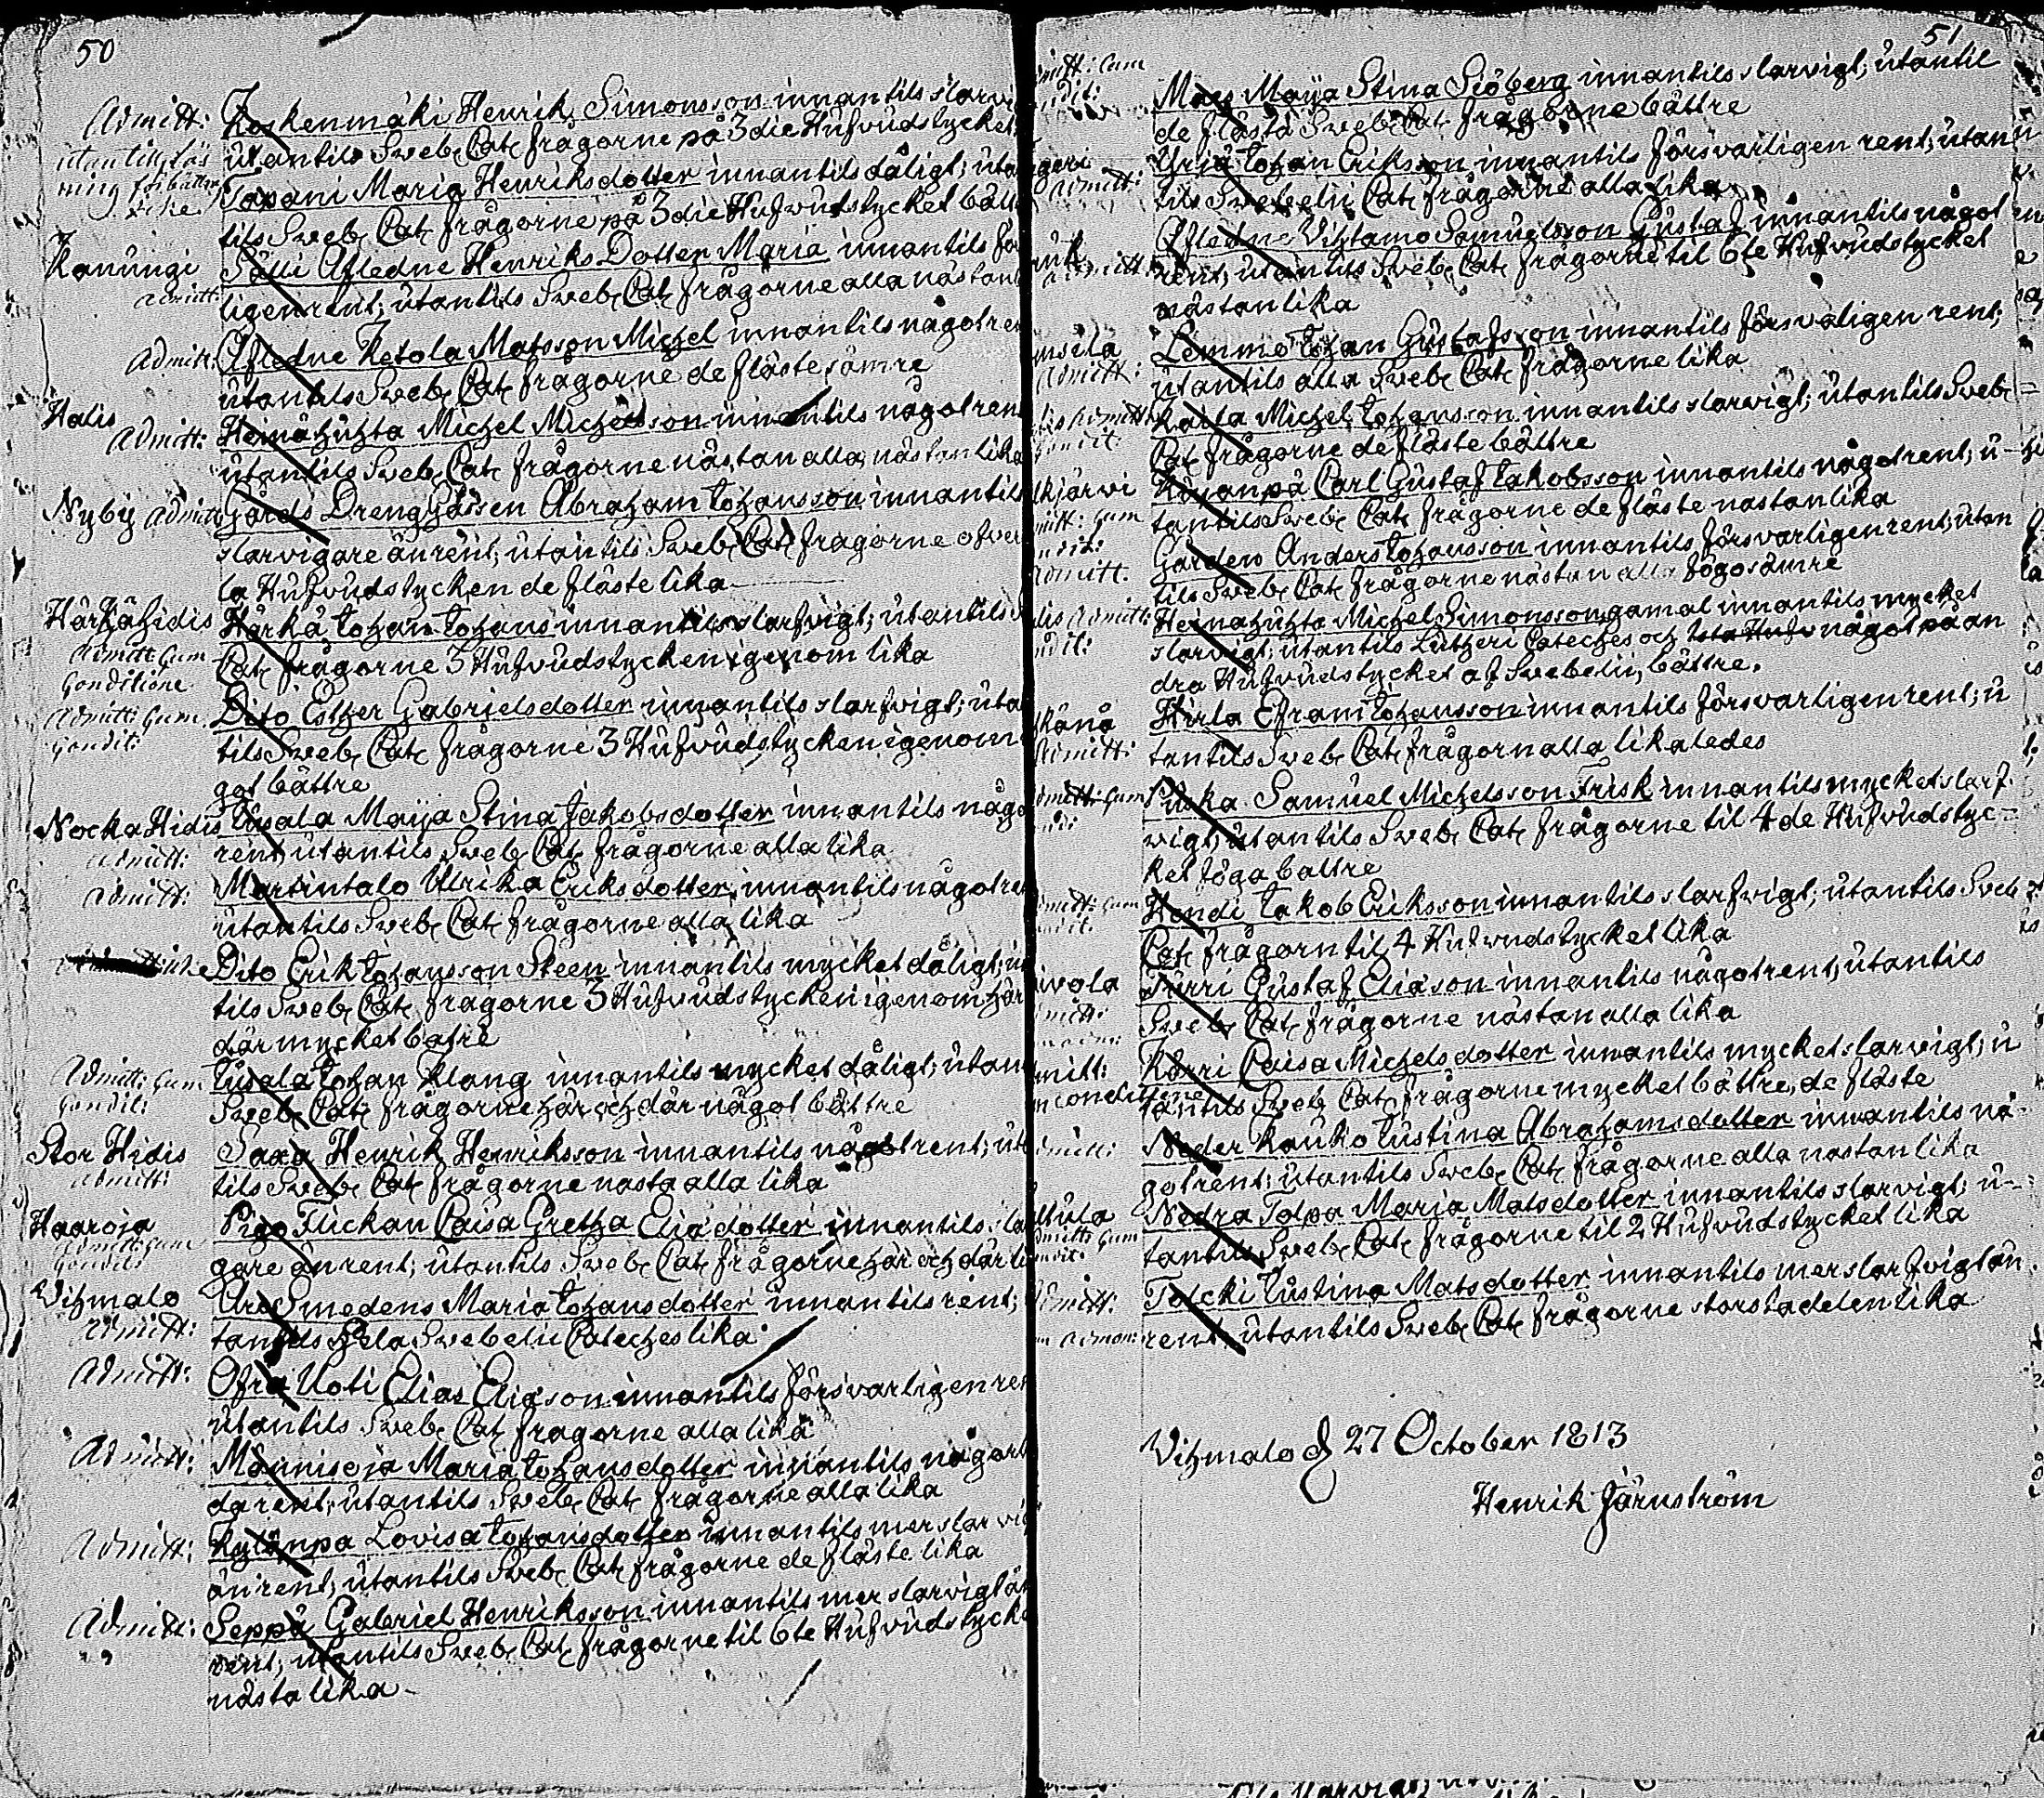 50
Admitt: Koskenmäki Henrik Simonsson innantils slarvi
utantils Sveb. Cat. frågorne på 3die Hufvudstycket
Tapani Maria Henriksdotter innantils dåligt; uta
tils Sveb. Cat. frågorne på 3die Hufvudstycket bätt
Kanungi Sälli Afledne Henriks Dotter Maria innantils för
admitt: ligen rent; utantils Sveb. Cat. frågorne alla nästan
Admitt: Afledne Ketola Matsson Michel innantils något re
utantils Sveb. Cat. frågorne de fläste sämre
Halis
Admitt: Heinähuhta Michel Michelsson innantils något ren
utantils Sveb. Cat. frågorne nästan alla nästan lika
Nyby Admitt Gårds Dreng Gåssen Abraham Johansson innantils
slarvigare än rent; utantils Sveb. Cat. frågorne öfver
la Hufvudstycken de fläste lika
Härkähidis Härkä Johan Johans innantils slarfvigt; utantils S
Admitt Cum Cat. frågorne 3 Hufvudstycken igenom lika
Conditione
Admitt: Cum Dito Esther Gabrielsdotter innantils slarfvigt; uta
Condit: tils Sveb. Cat. frågorne 3 Hufvudstycken igenom
got bättre
Nocka Hidis Jusala Maija Stina Jakobsdotter innantils någo
admitt: rent; utantils Sveb. Cat. frågorne alla lika
admitt: Martintalo Ulrika Eriksdotter innantils något re
utantils Sveb. Cat. frågorne alla lika
Dito Erik Johansson Steen innantils mycket dåligt; u
tils Sveb. Cat. frågorne 3 Hufvudstycken igenom här
där mycket bätre
Admitt: Cum Jusala Johan Klang innantils mycket dåligt; utan
Condit: Sveb. Cat. frågorne här och där något bättre
Stor Hidis Saxa Henrik Henriksson innantils något rent; ut
admitt: tils Sveb. Cat. frågorne nästa alla lika
Haaroja Piga Flickan Caisa Gretha Elia dotter innantils sla
Admitt: Cum
Condit: gare än rent; utantils Sveb. Cat. frågorne här och där li
Vihmalo Aro Smedens Maria Johansdotter innantils rent;
Admitt: tantils hela Svebelii Cateches lika
Admitt: Ofra Uoti Elias Eliason innantils försvarligen re
utantils Sveb. Cat. frågorne alla lika
Admitt: Männisoja Maria Johansdotter innantils någor
da rent; utantils Sveb. Cat. frågorne alla lika
Admitt: Kylänpä Lovisa Johansdotter innantils mer slarvi
än rent; utantils Sveb. Cat. frågorne de fläste lika
Admitt: Seppä Gabriel Henriksson innantils mer slarvigt än
rent; utantils Sveb. Cat. frågorne til 6te Hufvudstycke
nästa lika
51
mitt: Cum
Maja Stina Siöberg innantils slarvigt; utantil
de fläste Sveb. Cat. frågorne bättre
Yrjä Johan Eriksson innantils försvarligen rent; utan
Admitt: tils Svebelii Cat. frågorne alla lika
Afledne Vihtamo Samuelsson Gustaf innantils något
rent; utantils Sveb. Cat. frågorne til 6te Hufvudstycket
nästan lika
Lemmo Johan Gustafsson innantils försvaligen rent;
Admitt: utantils alla Sveb. Cat. frågorne lika
Kaila Michel Johansson innantils slarvigt; utantils Sveb.
Cat. frågorne de fläste bättre
kjärvi Kuuanpä Carl Gustaf Jakobsson innantils något rent; u-
mitt: Cum tantils Sveb. Cat. frågorne de fläste nästan lika
ndit: Gården Anders Johansson innantils försvarligen rent; utan
Admitt. tils Sveb. Cat. frågorne nästan alla fögo sämre
Admitt: Heinahuhta Michel Simonsson gamal innantils mycket
slarvigt; utantils Lutheri Cateches och något på an
dra Hufvudstycket af Svebelii, bättre.
Hirla Efraim Johansson innantils försvarligen rent; u
Admitt: tantils Sveb. Cat. frågorn alla likaledes
mitt: Cum Samuel Michelsson Frisk innantils mycket slarf-
vigt; utantils Sveb. Cat. frågorne til 4de Hufvudstyc-
ket föga bättre
mitt: Cum Hendi Jakob Eriksson innantils slarfvigt; utantils Sveb
Cat. frågorn til 4 Hufvudstycket lika
ivola Jurri Gustaf Eliason innantils något rent; utantils
mitt: Sveb. Cat. frågorne nästan alla lika
mitt: Korri Caisa Michelsdotter innantils mycket slarvigt; u
conditione tantils Sveb. Cat. frågorne mycket bättre, de fläste
mitt: Neder Kauko Justina Abrahamsdotter innantils nå-
got rent; utantils Sveb. Cat. frågorne alla nästan lika
Nedra Tolpa Maria Matsdotter innantils slarvigt; u-
mitt: Cum tantils Sveb. Cat. frågorne til 2 Hufvudstycket lika
Admitt: Tolcki Justina Matsdotter innantils mer slarfvigt än
rent; utantils Sveb. Cat. frågorne storsta delen lika
Vihmalo d. 27 October 1813
Henrik Järnström